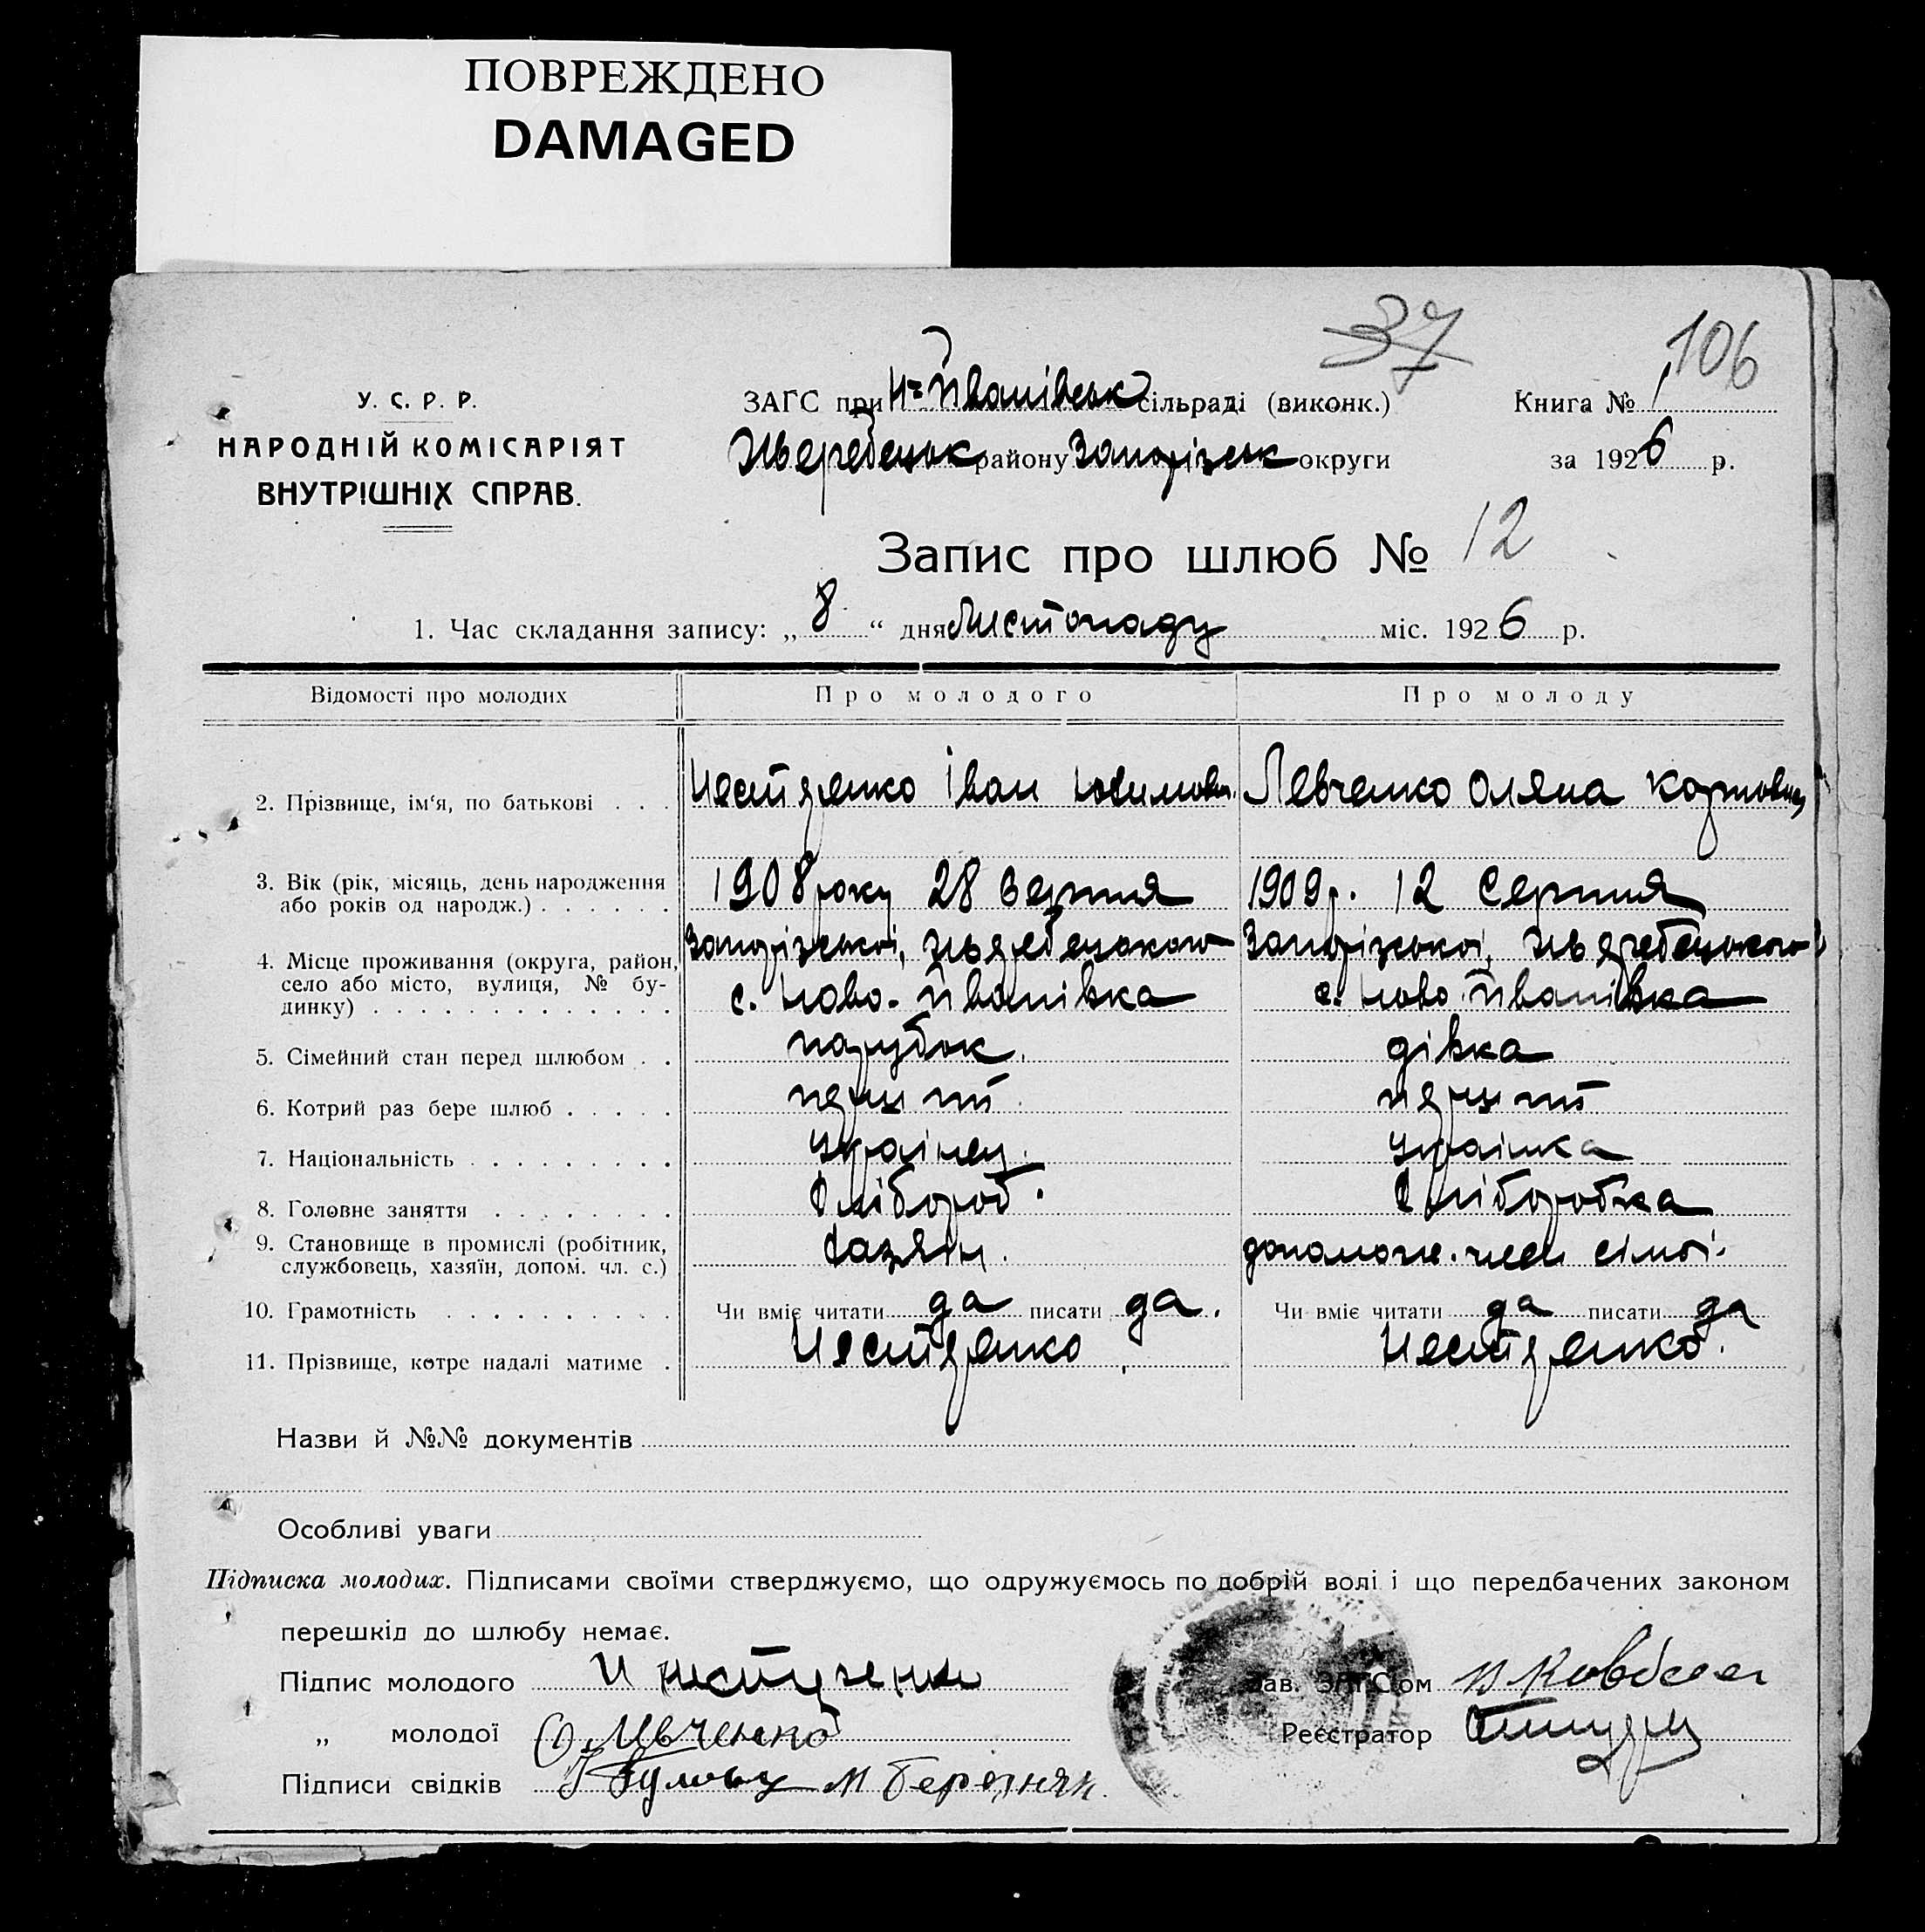 ПОВРЕЖДЕНО
DAMAGED
37
106
У. С. Р. Р.
НАРОДНІЙ КОМІСАРІЯТ
ВНУТРІШНІХ СПРАВ.
ЗАГС при Н=Йванівськ сільраді (виконк.)
Книга № 1
Жеребецьк району Запорізськ округи
за 1926 р.
Запис про шлюб № 12
1. Час складання запису: „ 8 “ дня Листопаду міс. 1926 р.
Відомості про молодих Про молодого Про молоду
2. Прізвище, ім‘я, по батькові . . . Нестеренко Іван Левченко Оляна
3. Вік (рік, місяць, день народження 1908 року 28 Серпня 1909 р. 12 Серпня
або років од народж.) . . . . . .
4. Місце проживання (округа, район, Запорізської, Жеребецького Запорізської, Жеребецького
село або місто, вулиця, № бу- с. Ново-Йванівка с. Ново Йванівка
динку) . . . . . . . . . . . . .
5. Сімейний стан перед шлюбом . . парубок. дівка
6. Котрий раз бере шлюб . . . . . перший перший
7. Національність . . . . . . . . . українец. українка
8. Головне заняття . . . . . . . . Хлібороб. Хліборобка
9. Становище в промислі (робітник, Хазяін. допомож. член сімьі.
службовець, хазяїн, допом. чл. с.)
10. Грамотність . . . . . . . . . . Чи вміє читати да писати да. Чи вміє читати да писати да
11. Прізвище, котре надалі матиме . Нестеренко Нестеренко.
Назви й №№ документів
Особливі уваги
Підписка молодих. Підписами своїми стверджуємо, що одружуємось по добрій волі і що передбачених законом
перешкід до шлюбу немає.
Підпис молодого И
Зав. ЗАГС‘ом
„ молодої О Левченко
Реєстратор
Підписи свідків М